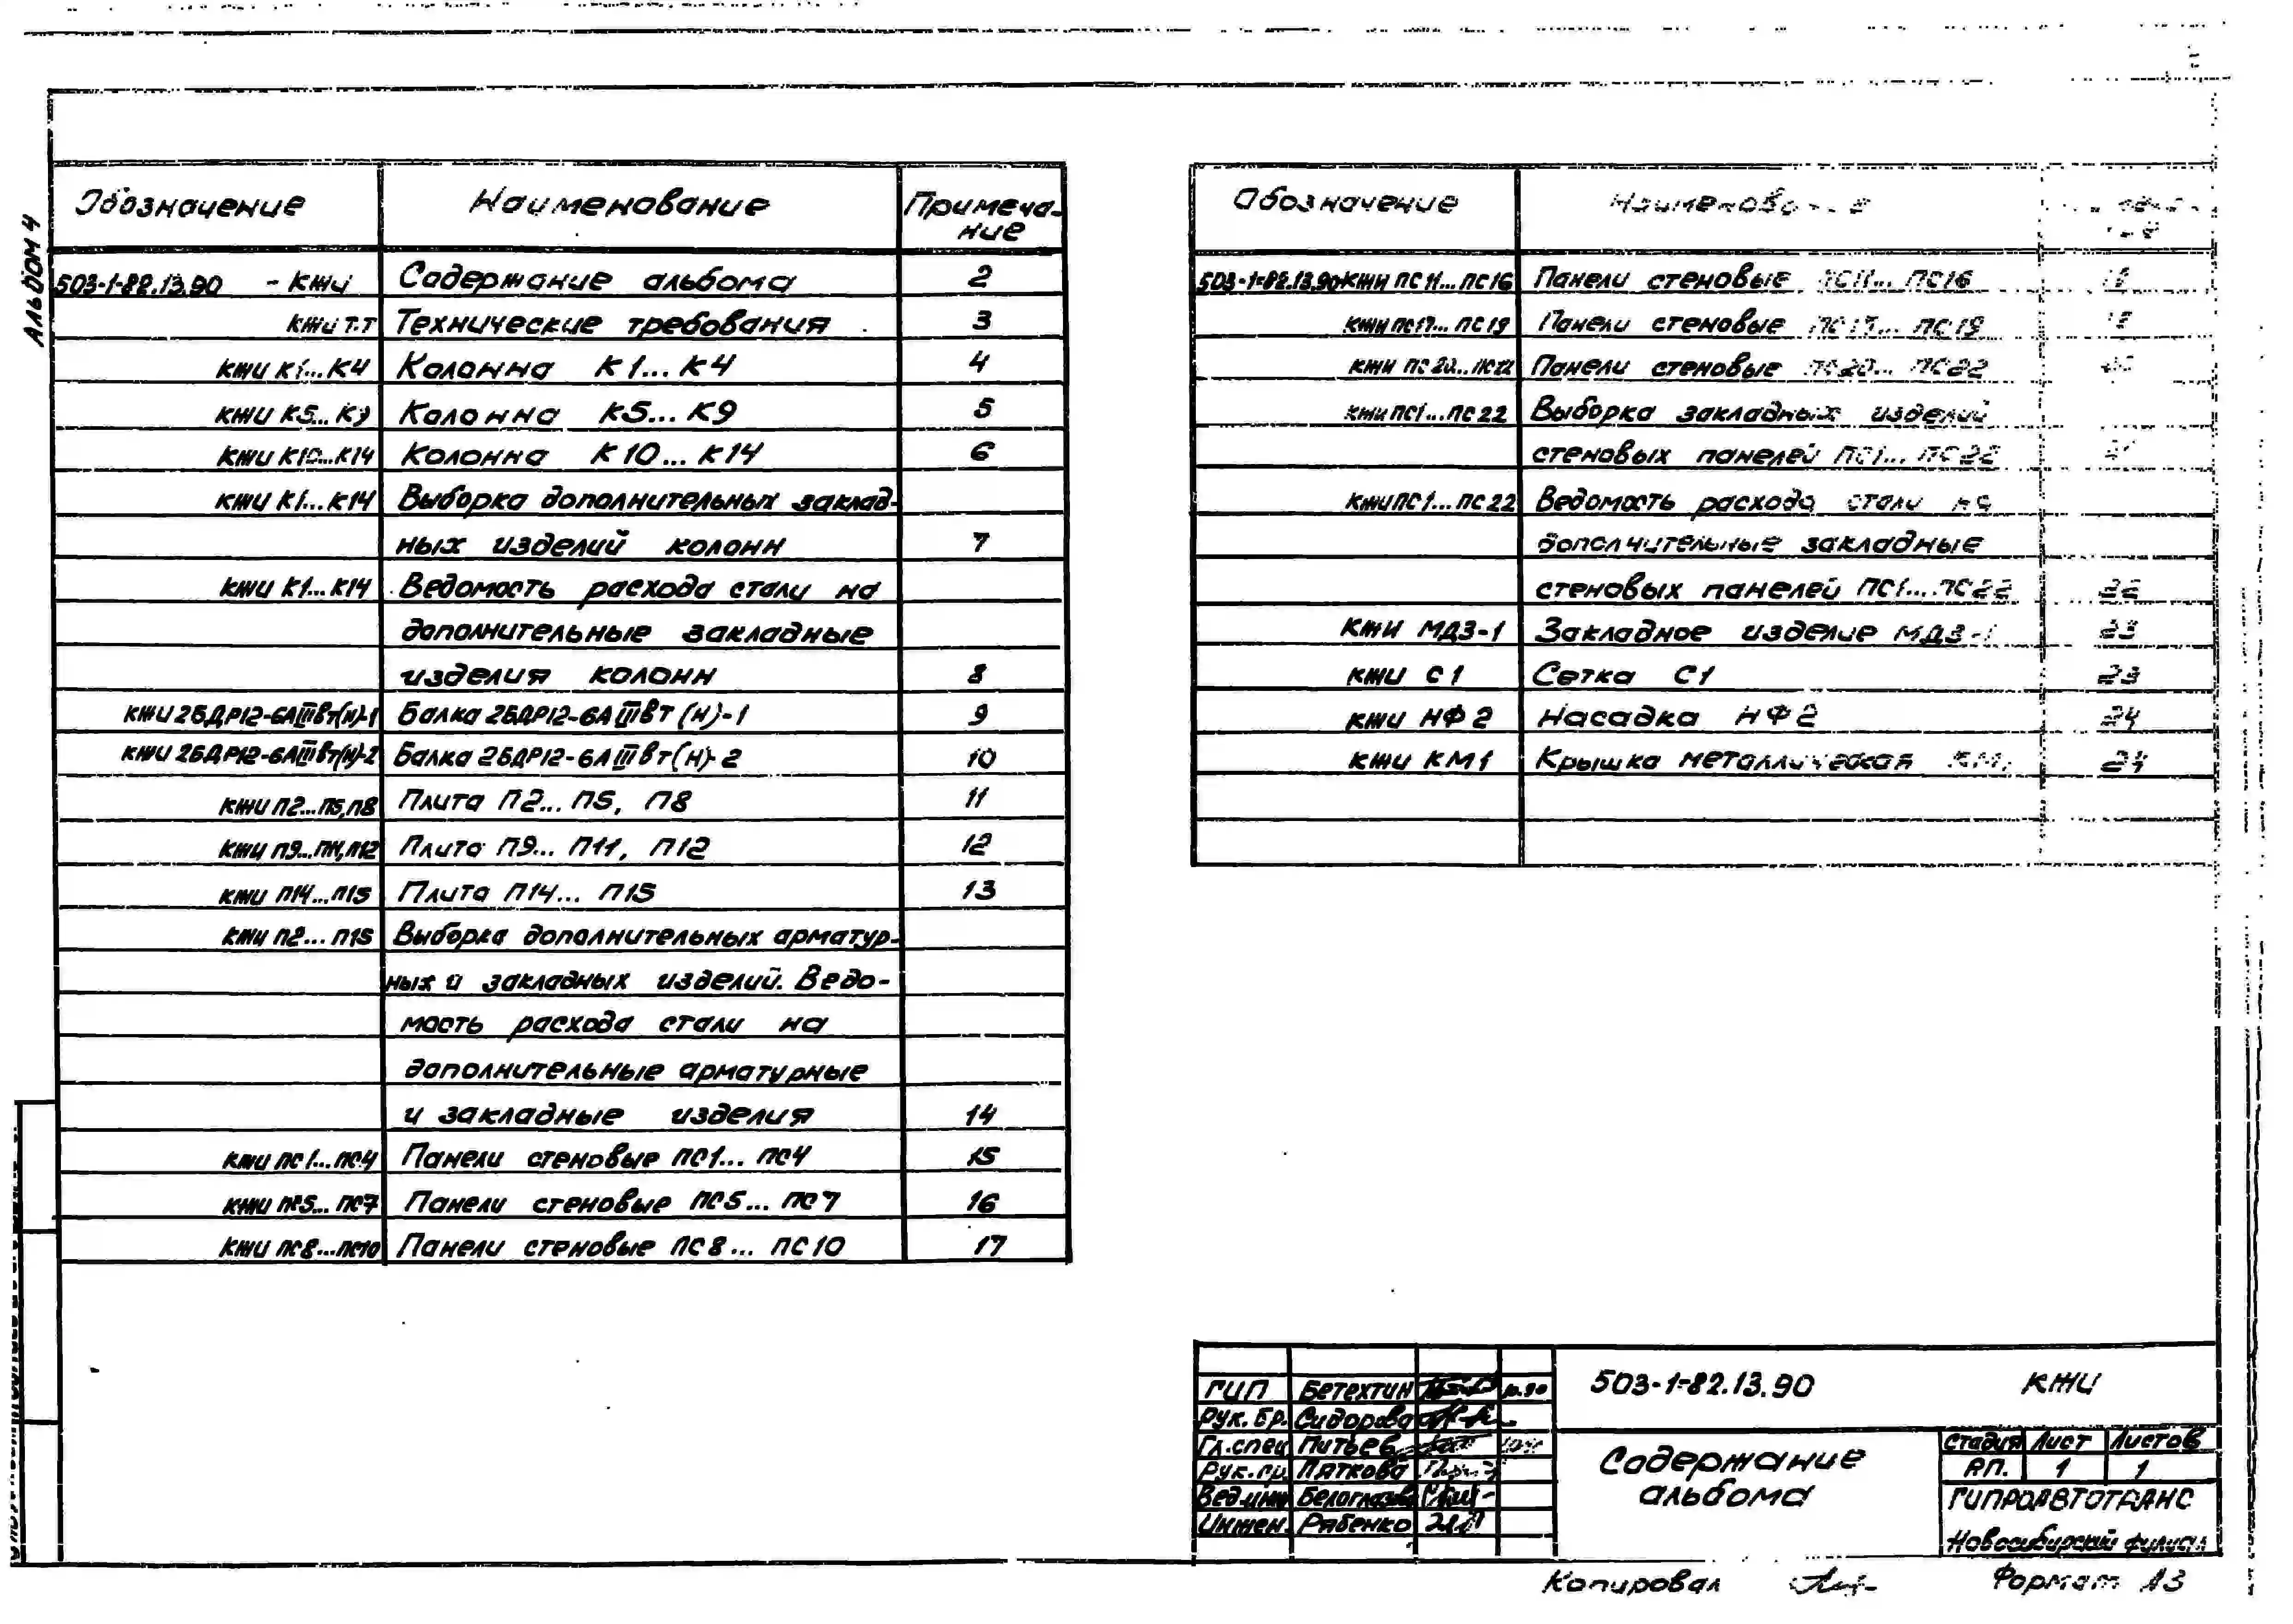 Альбом 4
Обозначение Наименование Примеча-
ние
503-1-82.13.90 - КЖИ Содержание альбома 2
КЖИ Т.Т Технические требования 3
КЖИ К1...К4 Колонна К1...К4 4
КЖИ К5...К9 Колонна К5...К9 5
КЖИ К10...К14 Колонна К10...К14 6
КЖИ К1...К14 Выборка дополнительных заклад-
ных изделий колонн 7
КЖИ К1...К14 Ведомость расхода стали на
дополнительные закладные
изделия колонн 8
КЖИ 2БДР12-6АIIIвт(н)-1 Балка 2БДР12-6АIIIвт(н)-1 9
КЖИ 2БДР12-6АIIIвт(н)-2 Балка 2БДР12-6АIIIвт(н)-2 10
КЖИ П2...П5,П8 Плита П2...П5, П8 11
КЖИ П9...П11,П12 Плита П9...П11, П12 12
КЖИ П14...П15 Плита П14...П15 13
КЖИ П2...П15 Выборка дополнительных арматур-
ных и закладных изделий. Ведо-
мость расхода стали на
дополнительные арматурные
и закладные изделия 14
КЖИ ПС1...ПС4 Панели стеновые ПС1...ПС4 15
КЖИ ПС5...ПС7 Панели стеновые ПС5...ПС7 16
КЖИ ПС8...ПС10 Панели стеновые ПС8...ПС10 17
Обозначение
503-1-82.13.90 КЖИ ПС11...ПС16 Панели стеновые ПС11...ПС16
КЖИ ПС17...ПС19 Панели стеновые ПС17...ПС19
КЖИ ПС20...ПС22 Панели стеновые ПС20...ПС22
КЖИ ПС1...ПС22 Выборка закладных изделий
стеновых панелей ПС1...ПС22
КЖИ ПС1...ПС22 Ведомость расхода стали на
дополнительные закладные
стеновых панелей ПС1...ПС22 22
КЖИ МДЗ-1 Закладное изделие МДЗ-1 23
КЖИ С1 Сетка С1 23
КЖИ НФ2 Насадка НФ2 24
КЖИ КМ1 Крышка металлическая КМ1 24
503-1-82.13.90 КЖИ
ГИП Бетехтин 10.90
Рук. бр. Сидорова
Гл.спец Питьев
Рук.гр. Пяткова
Вед.инж Белоглазова
Инжен. Рябенко
Содержание
альбома
Стадия Лист Листов
Р.П. 1 1
ГИПРОАВТОТРАНС
Новосибирский филиал
Копировал
Формат А3